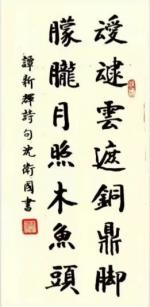 叆叇雲遮銅鼎脚
朦朧月照木魚頭
譚新輝詩句沈衛國書